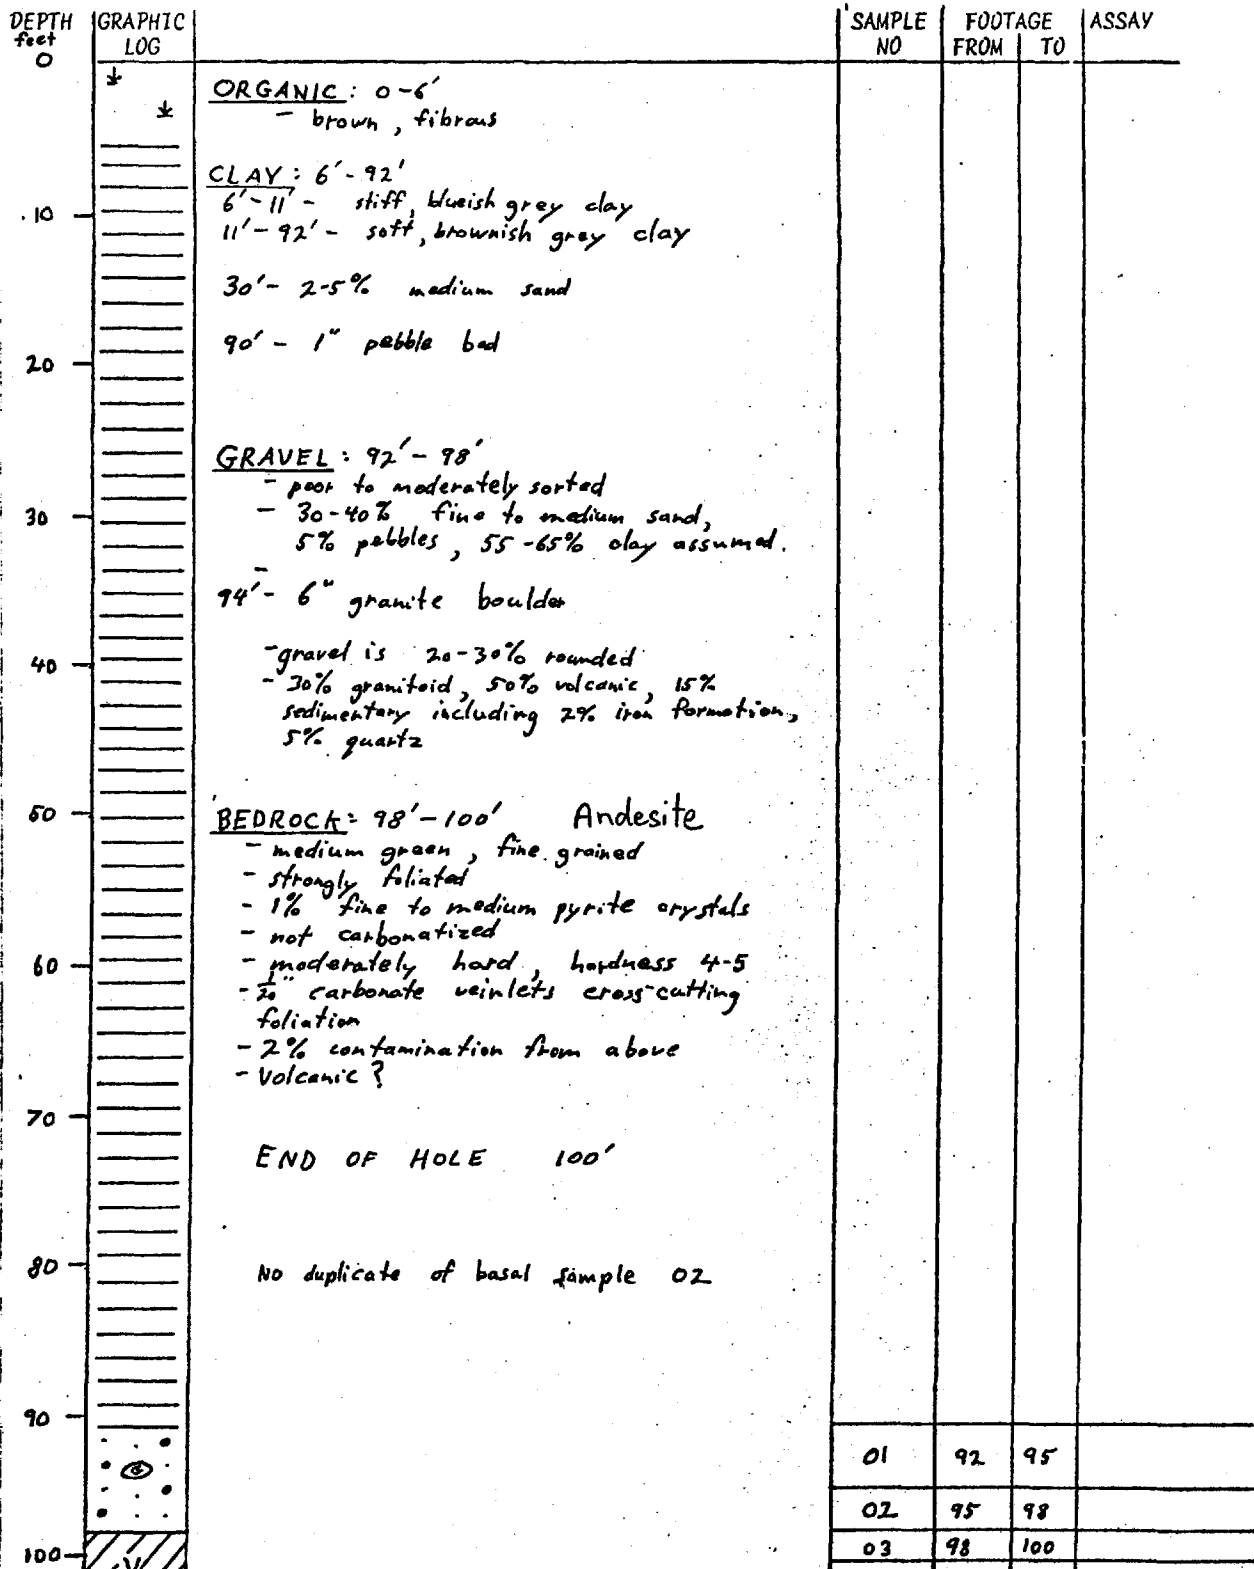 DEPTH feet GRAPHIC LOG SAMPLE NO FOOTAGE FROM TO ASSAY
0
ORGANIC: 0-6'
- brown, fibrous
CLAY: 6'-92'
6'-11' - stiff, blueish grey clay
10
11'-92' - soft, brownish grey clay
30' - 2-5% medium sand
90' - 1" pebble bed
20
GRAVEL: 92'-98'
- poor to moderately sorted
30
- 30-40% fine to medium sand,
5% pebbles, 55-65% clay assumed.
-
94' - 6" granite boulder
- gravel is 20-30% rounded
40
- 30% granitoid, 50% volcanic, 15%
sedimentary including 2% iron formation,
5% quartz
50
BEDROCK: 98'-100' Andesite
- medium green, fine grained
- strongly foliated
- 1% fine to medium pyrite crystals
- not carbonatized
60
- moderately hard, hardness 4-5
- 1/20" carbonate veinlets cross-cutting
foliation
- 2% contamination from above
- Volcanic?
70
END OF HOLE 100'
80
No duplicate of basal sample 02
90
01 92 95
02 95 98
100
03 98 100
V